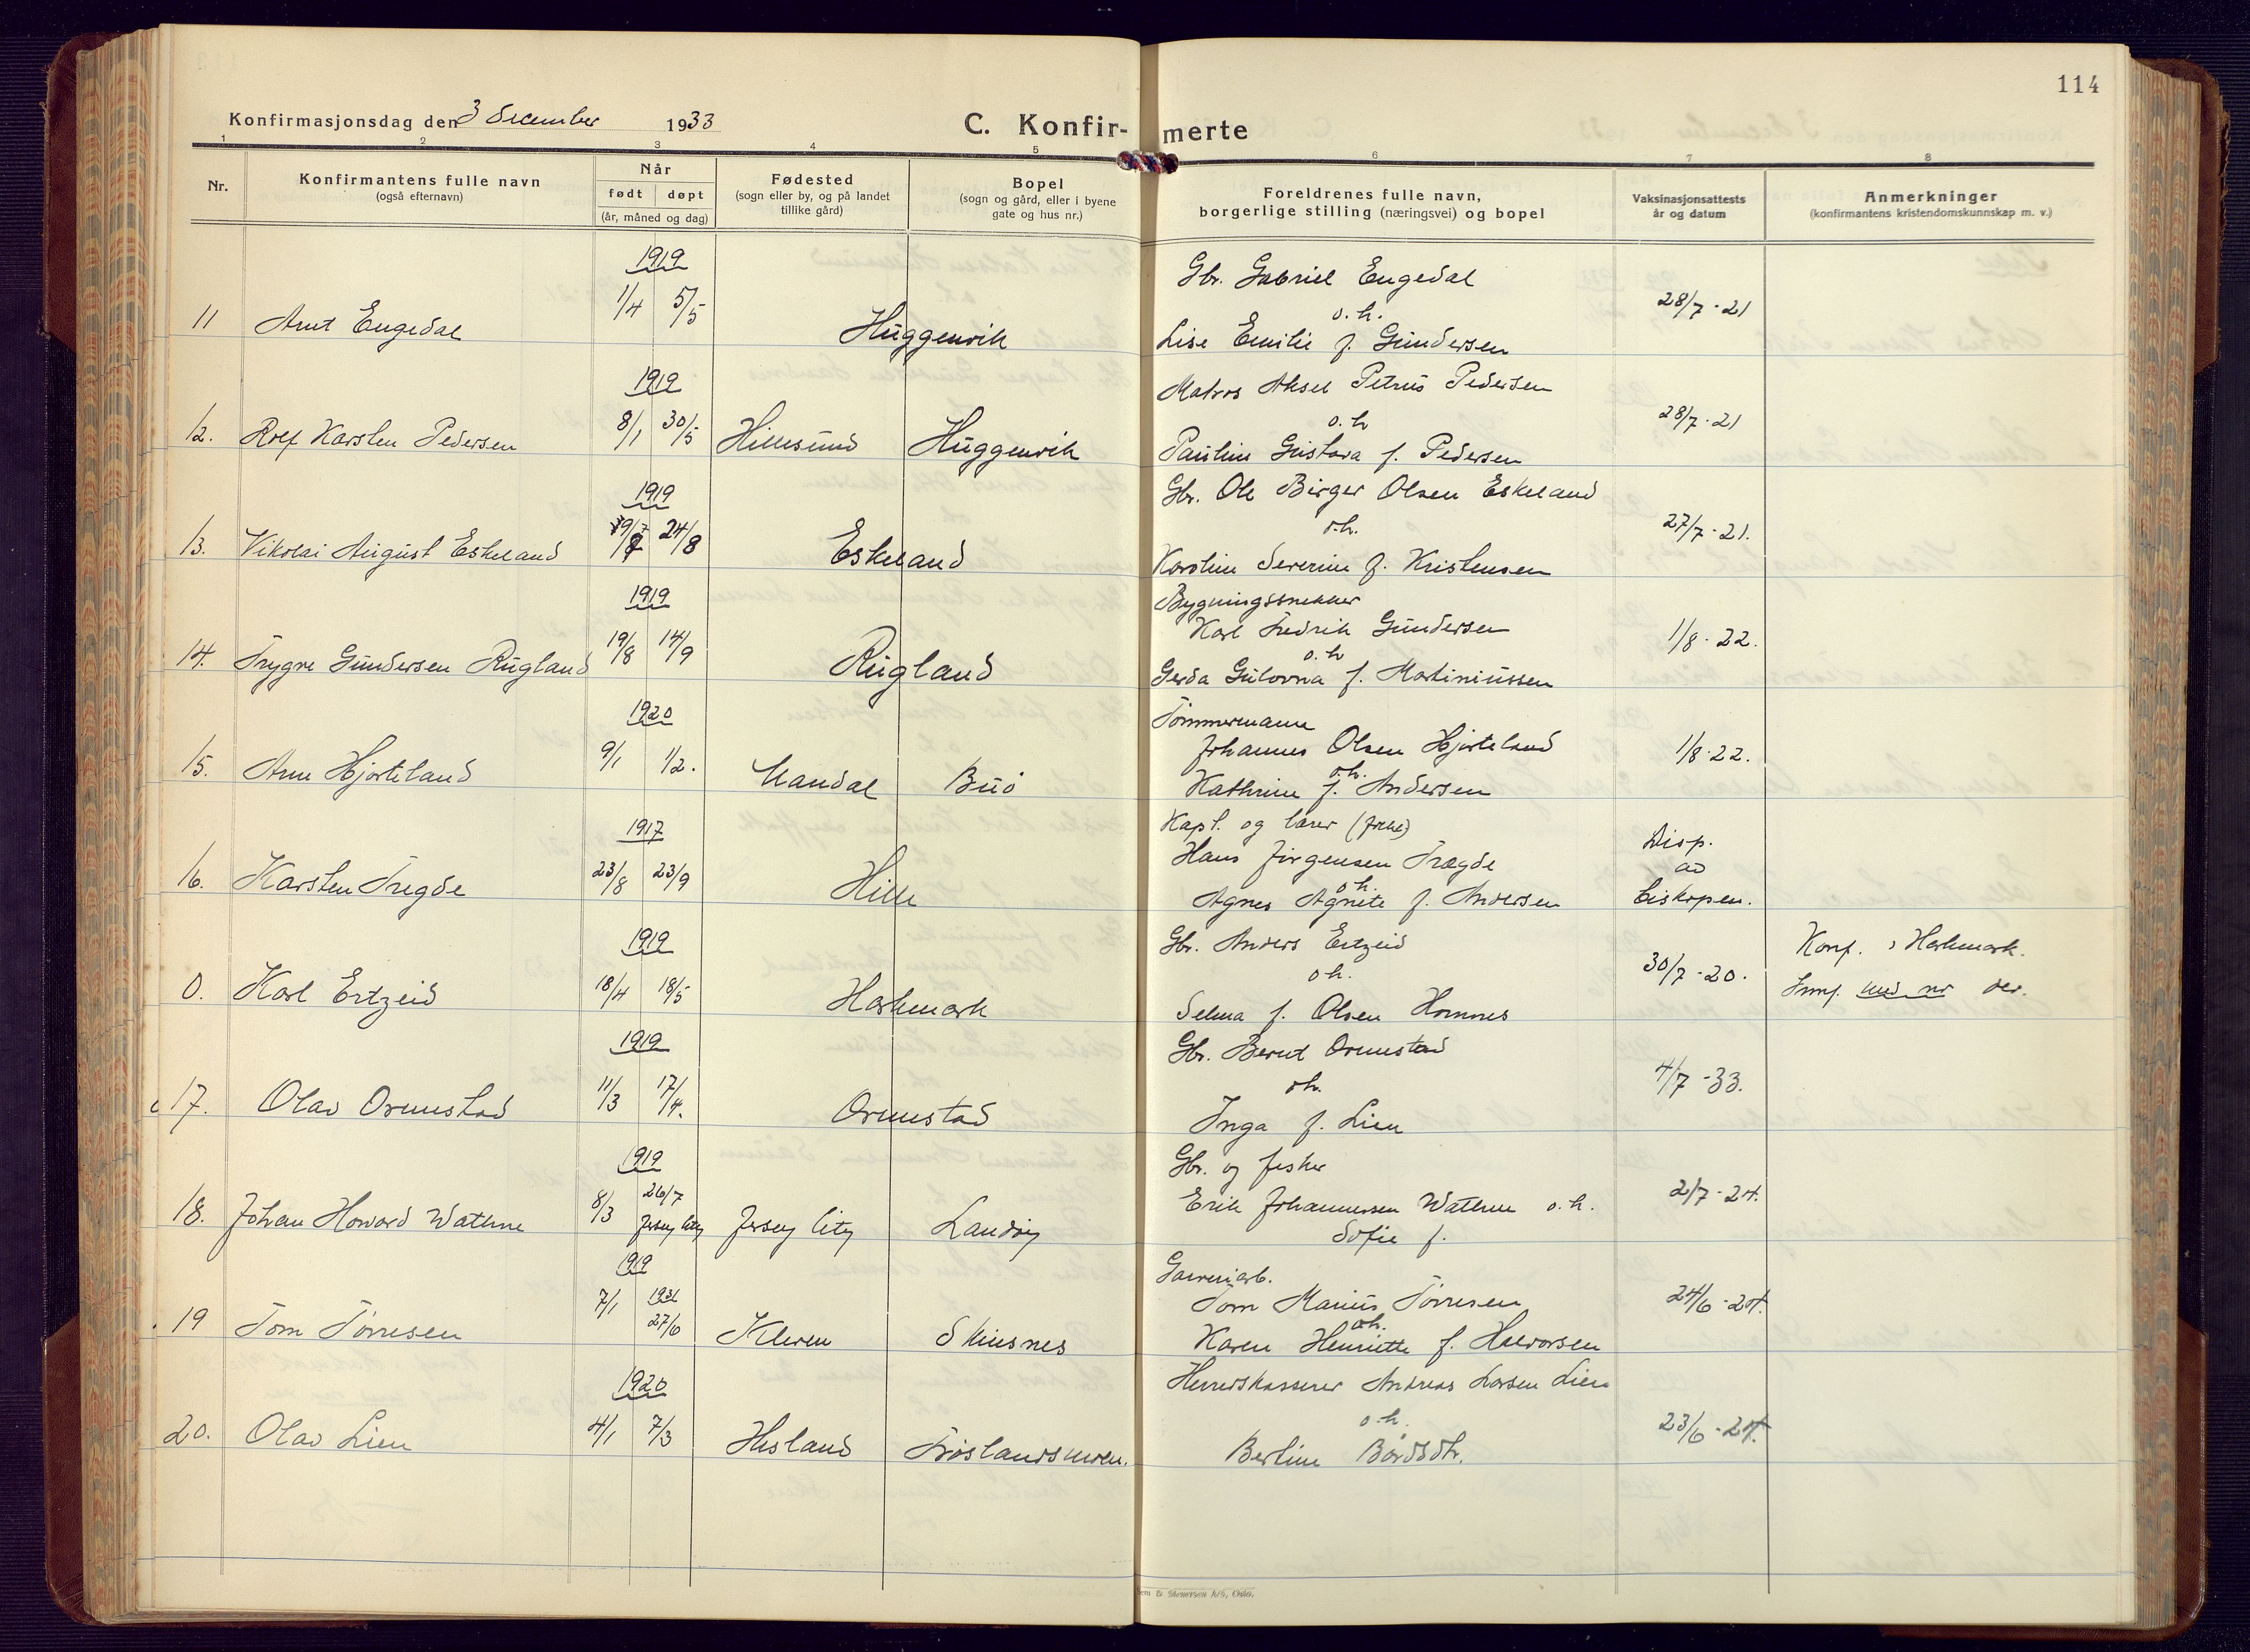 114
Konfirmasjonsdag den 3 December 1933
C. Konfir-merte
1 2 3 4 5 6 7 8
Nr.
Konfirmantens fulle navn
(også efternavn)
Når
født døpt
(år, måned og dag)
Fødested
(sogn eller by, og på landet
tillike gård)
Bopel
(sogn og gård, eller i byene
gate og hus nr.)
Foreldrenes fulle navn,
borgerlige stilling (næringsvei) og bopel
Vaksinasjonsattests
år og datum
Anmerkninger
(konfirmantens kristendomskunnskap m. v.)
1919
Gbr. Gabriel Engedal
1/4 5/5
28/7-21
o.h.
11 Arnt Engedal Huggenvik
Lise Emilie f. Gundersen
1919
Matros Aksel Petrus Pedersen
8/1 30/5
28/7-21
o.h
12. Rolf Karsten Pedersen Hillesund Huggenvik
Pauline Gustava f. Pedersen
1919
Gbr. Ole Birger Olsen Eskeland
24/8
27/7-21.
o.h.
13. Nikolai August Eskeland Eskeland
Karoline Severine f. Kristensen
1919
Bygningssnekker
Karl Fredrik Gundersen
19/8 14/9
1/8-22.
o.h
14. Trygve Gundersen Rugland Rugland
Gerda Gulovna f. Martiniussen
1920
Tømmermann
Johannes Olsen Hjorteland
9/1 1/2.
1/8-22.
o.h.
15. Arne Hjorteland Mandal Buø
Kathrine f. Andersen
1917
Kapt. og lærer
Hans Jørgensen Trægde
Disp.
av
biskopen.
23/8 23/9
o.h.
16. Karsten Tregde Hille
Agnes Agnete f. Andersen
1919
Gbr. Anders Ertzeid
Konf. i Harkmark.
18/4 18/5
oh.
30/7-20.
Innf. med nr der.
0. Karl Ertzeid Harkmark
Selma f. Olsen Homnes
1919
Gbr. Bernt Ormestad
11/3 17/4.
oh.
4/7-33.
17. Olav Ormestad Ormestad
Inga f. Lien
1919
Gbr. og fisker
8/3 26/7
Jersey City
Erik Johannessen Wathne o.h.
2/7-24.
18. Johan Howard Wathne Jersey City Landøy
Sofie f.
1919
Garveriarb.
7/1 1931
27/6
Tom Marius Tørresen
24/6-24.
oh.
19 Tom Tørresen Kleven Skinsnes
Karen Henriette f. Halvorsen
1920
Herredskasserer Andreas Larsen Lien
4/1 7/3
o.h.
23/6-24.
20. Olav Lien Hesland Frøslandsmoen.
Berline Bårdsdtr.